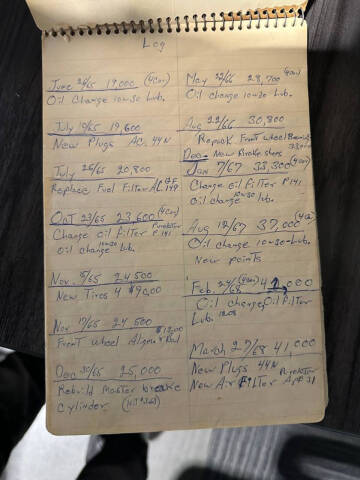 Log
June 28/65 19,000 (4 Can)
Oil Change 10w30 Lub.
July 19/65 19,600
New Plugs AC. 44N
July 26/65 20,800
Replace Fuel Filter
Oct 23/65 23,600 (4 Can)
Change Oil Filter Purolator P141
Oil Change 10w30 lub.
Nov. 8/65 24,500
New Tires 4 $90.00
Nov 17/65 24,500
Front Wheel $12.00
Dec 30/65 25,000
Rebuild Master brake
Cylinder
May 22/66 28,700 (4 Can)
Oil Change 10w30 Lub.
Aug 22/66 30,800
Repack Front Wheel
Dec- New Brake Shoes
Jan 7/67 33,300 (4 Can)
Change Oil Filter P141
Oil Change 10w30 lub.
Aug 12/67 37,000 (4 Can)
Oil Change 10w30-Lub.
New points
Feb 24/68 (4 Can) 41,000
Oil Change, Oil Filter
Lub.
March 27/68 41,000
New Plugs 44N
New Air Filter Purolator